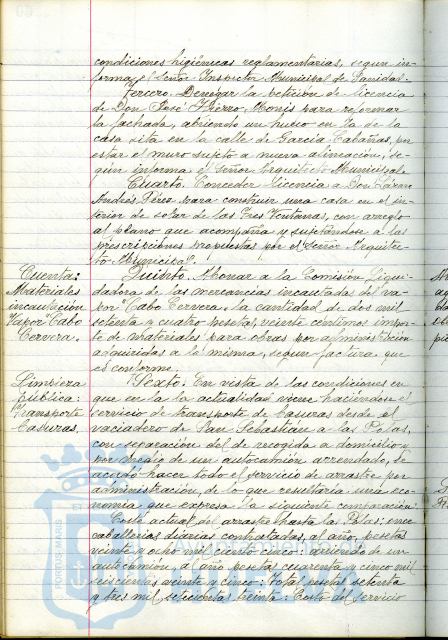 condiciones higiénicas reglamentarias, segun in-
forma el Señor Inspector Municipal de Sanidad.
Tercero. Denegar la petición de licencia
de Don José Hierro Monis para reformar
la fachada, abriendo un hueco en la de la
casa sita en la calle de García Cabañas, por
estar el muro sujeto a nueva alineación, se-
gún informa el Señor Arquitecto Municipal.
Cuarto. Conceder licencia a Don
Andrés Pérez para construir una casa en el in-
terior de solar de las Tres Ventanas, con arreglo
al plano que acompaña y sujetandose a las
prescripciones propuestas por el Señor Arquitec-
to Municipal.
Cuenta:
Materiales
incautación
Vapor "Cabo
Cervera.
Quinto. Abonar a la Comisión Liqui-
dadora de las mercancias incautadas del va-
por "Cabo Cervera, la cantidad de dos mil
setenta y cuatro pesetas, veinte centimos impor-
te de materiales para obras por administración
adquiridas a la misma, segun factura que
es conforme.
Limpieza
pública:
Transporte
Basuras.
Sexto. En vista de las condiciones en
que en la actualidad viene haciéndose el
servicio de transporte de basuras desde el
vaciadero de San Sebastian a las Pilas,
con separación del de recogida a domicilio y
por medio de un autocamión arrendado, se
acordó hacer todo el servicio de arrastre por
administración, de lo que resultaria una eco-
nomia que expresa la siguiente comparación:
Coste actual del arrastre hasta las Pilas: once
caballerias diarias contratadas, al año, pesetas
veinte y ocho mil ciento cinco: arriendo de un
autocamión al año pesetas cuarenta y cinco mil
seiscientas veinte y cinco: Total pesetas setenta
y tres mil setecientas treinta: Coste del servicio